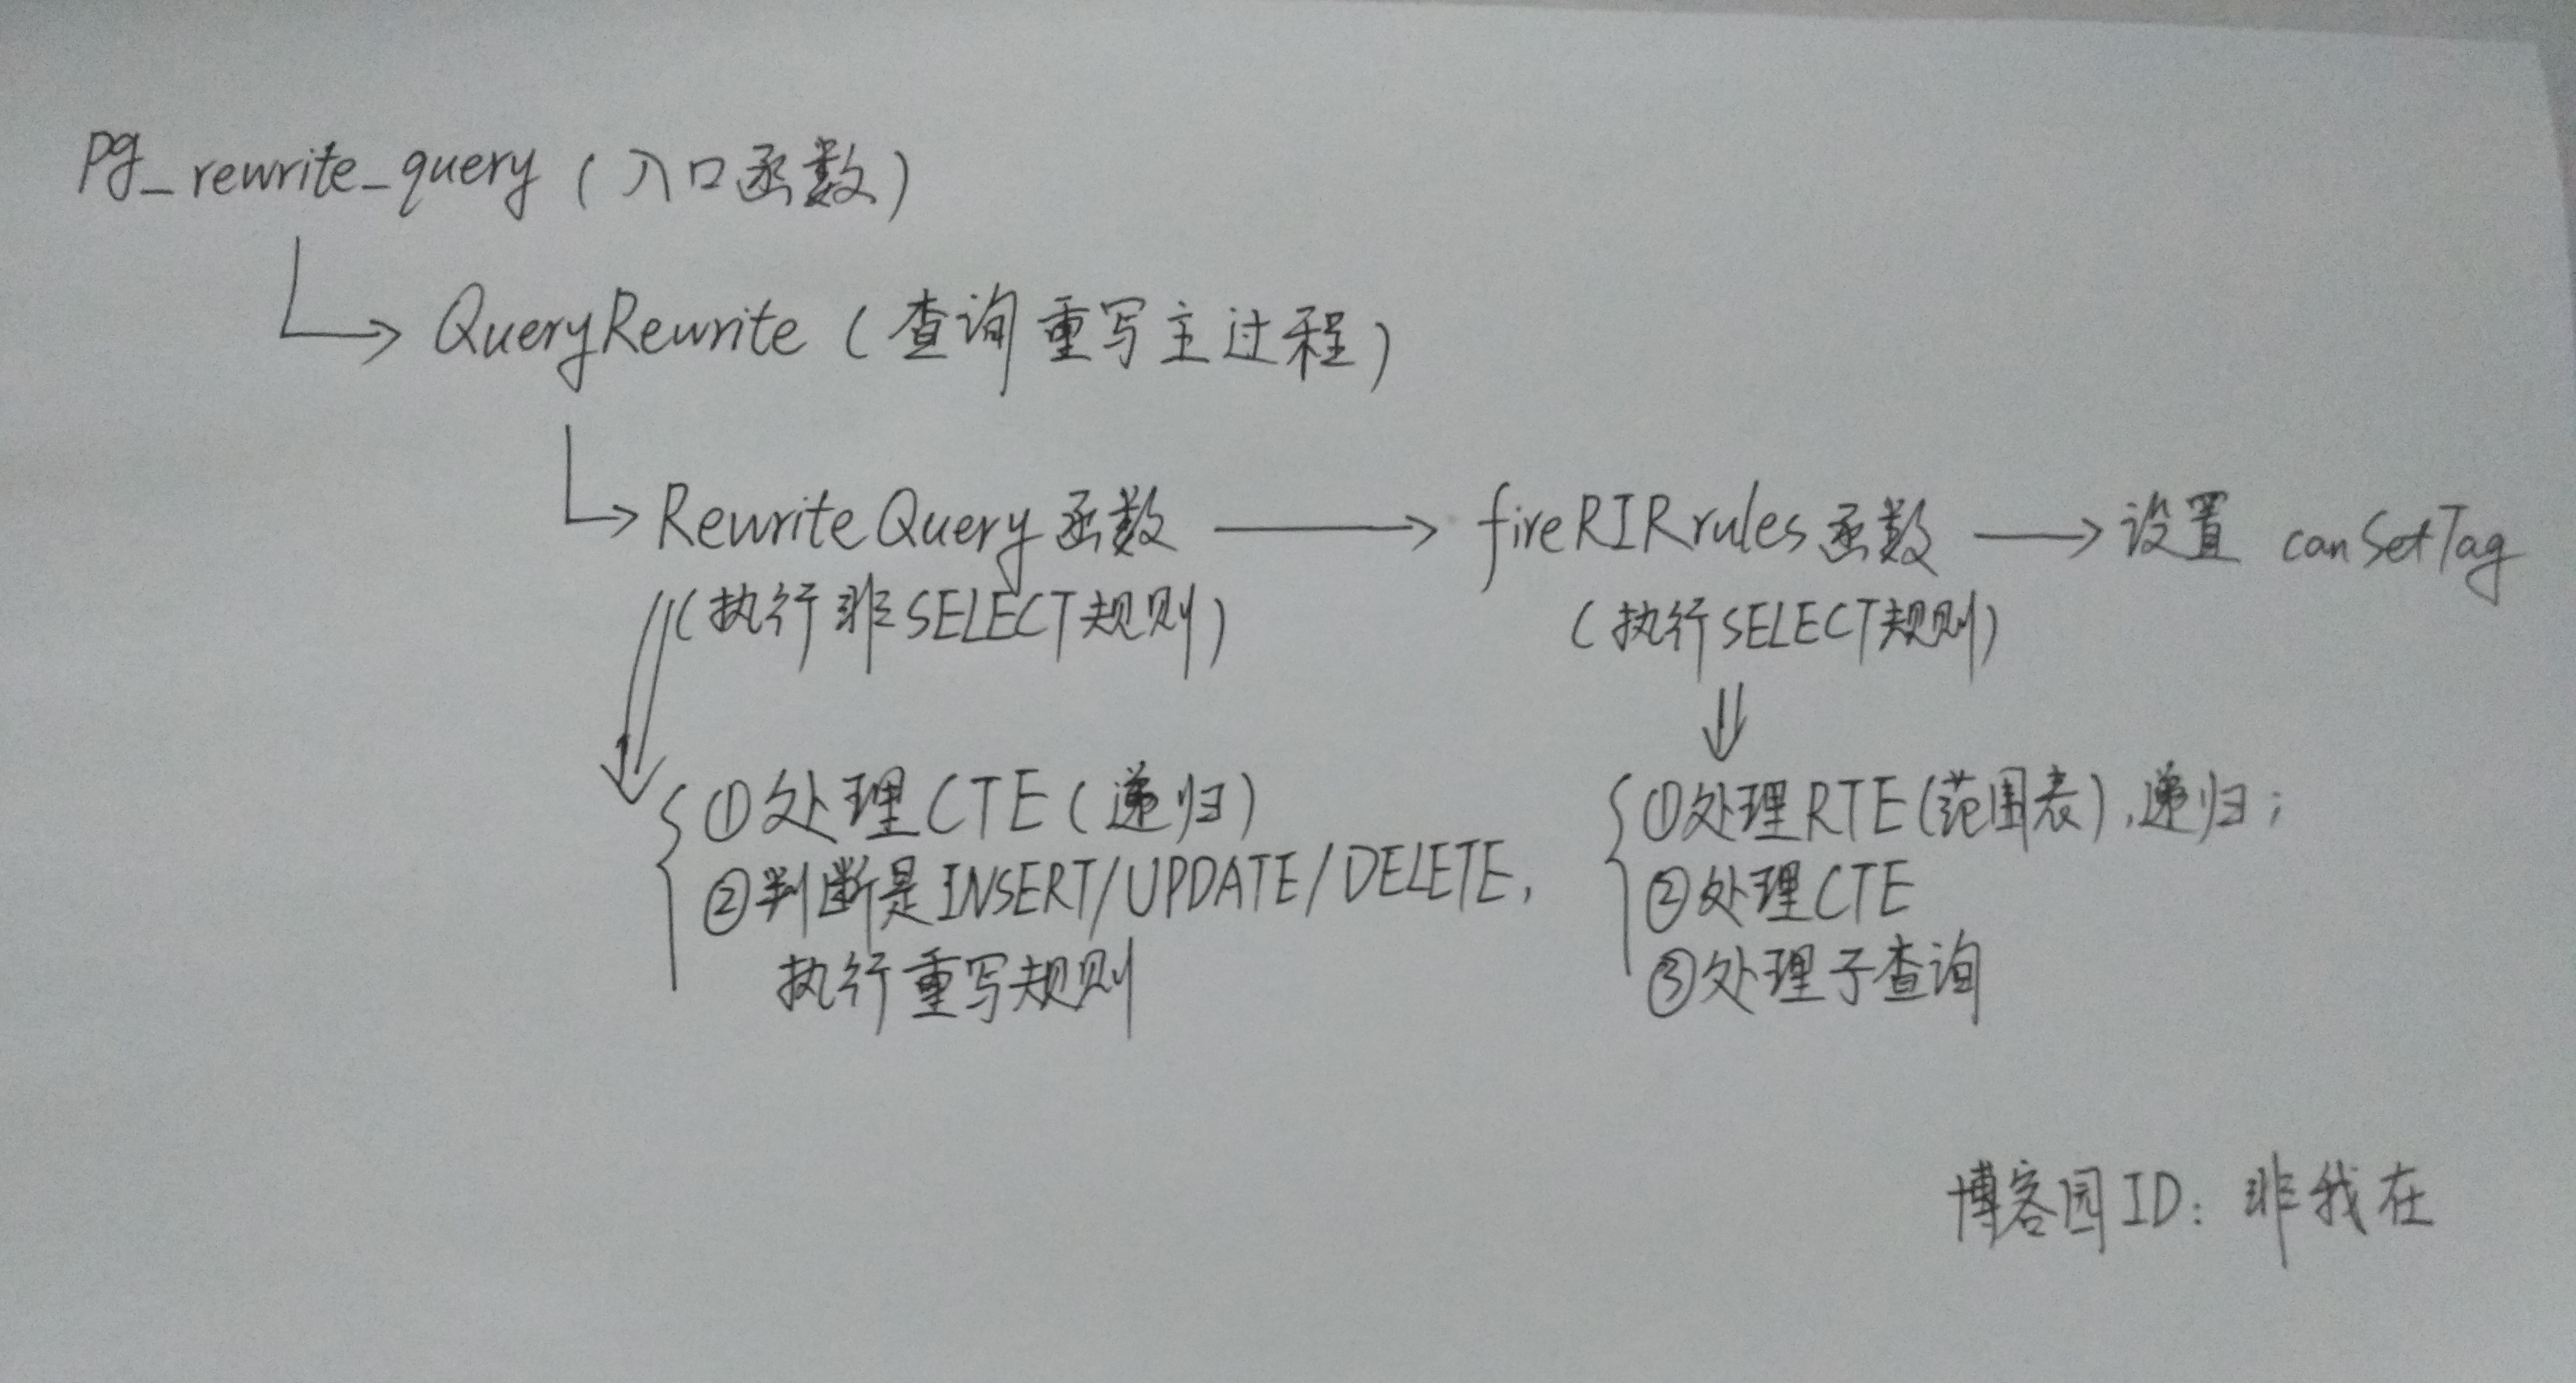 pg_rewrite_query (入口函数)
QueryRewrite (查询重写主过程)
RewriteQuery 函数 fireRIRrules 函数 设置 canSetTag
(执行非SELECT规则) (执行SELECT规则)
①处理CTE(递归) ①处理RTE(范围表),递归;
②判断是INSERT/UPDATE/DELETE, ②处理CTE
执行重写规则 ③处理子查询
博客园ID: 非我在